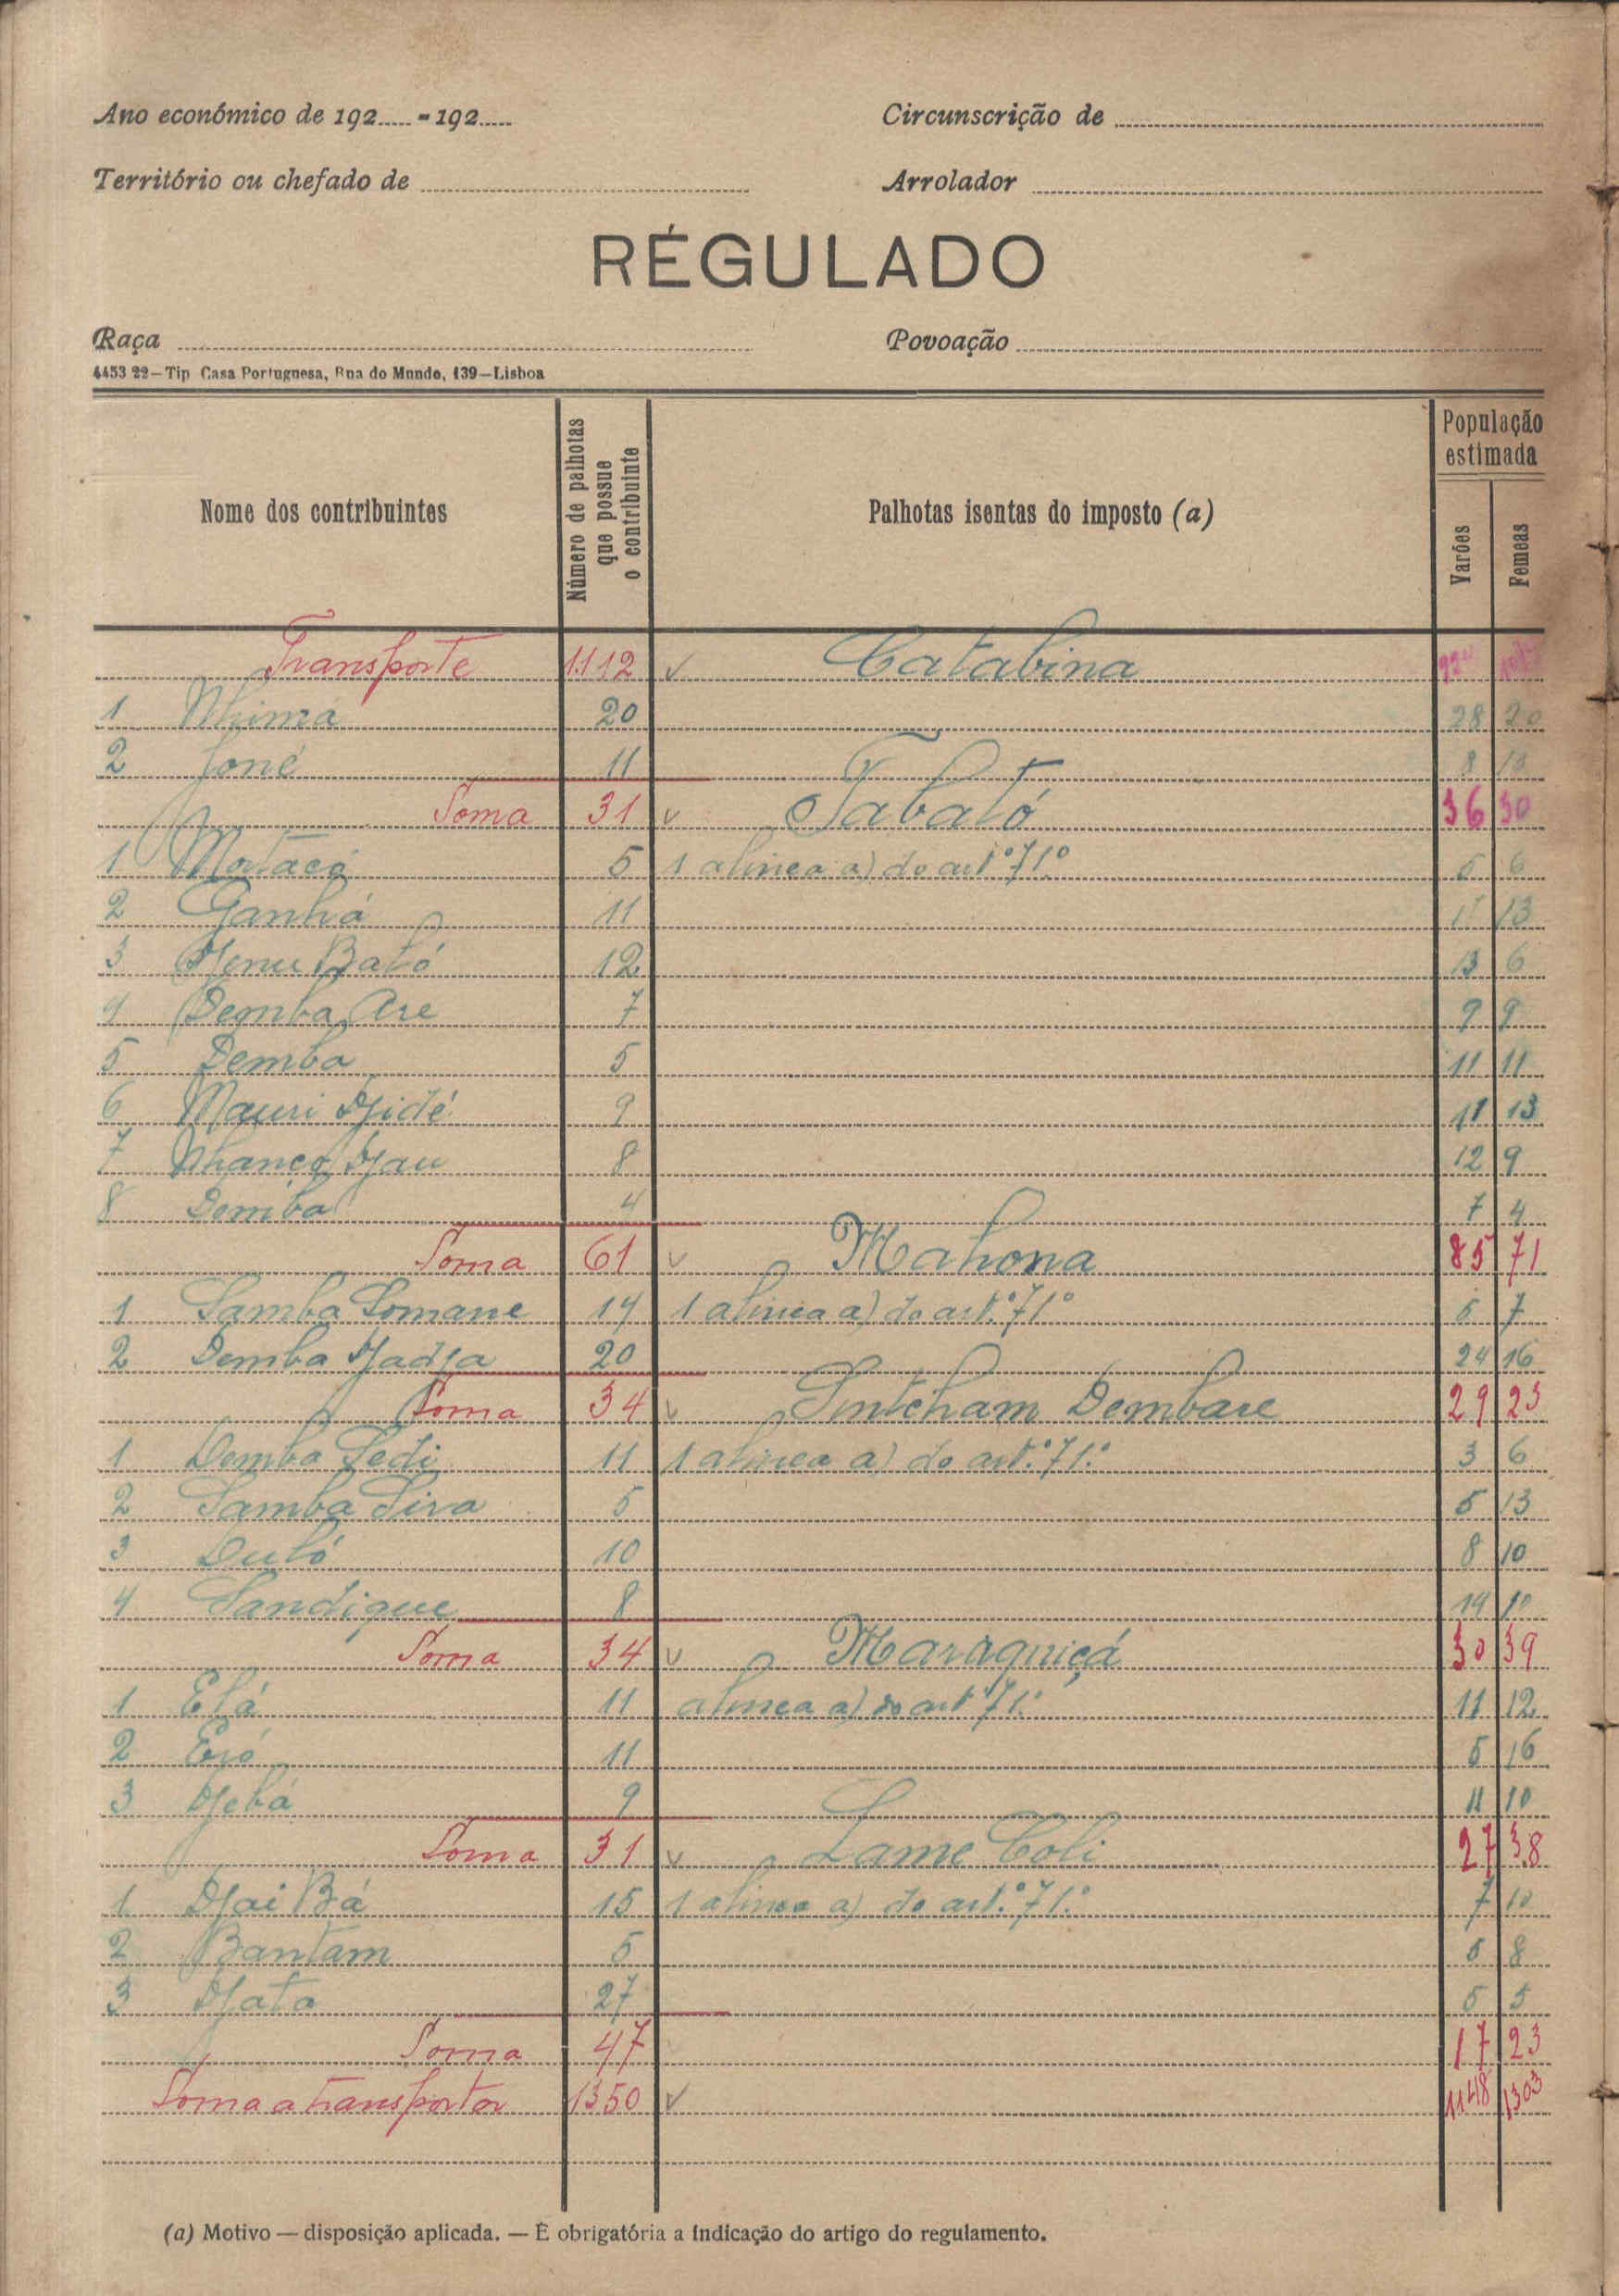 Ano económico de 192..... - 192.....
Circunscrição de
Território ou chefado de
Arrolador
RÉGULADO
Raça
Povoação
4453 22—Tip Casa Portuguesa, Rua do Mundo, 139—Lisboa
Nome dos contribuintes
Número de palhotas que possue o contribuinte
Palhotas isentas do imposto (a)
População estimada
Varões
Femeas
Transporte 1112 v Catabina
1 Nhima 20 28 20
2 Joné 11 8 10
Soma 31 v Tabató 36 30
1 5 1 alinea a) do art.º 71.º 5 6
2 Ganhá 11 11 13
3 Bató 12 13 6
4 Demba Are 7 9 9
5 Demba 5 11 11
6 Mauri Djidé 9 11 13
7 Nhanço Djau 8 12 9
8 Demba 4 7 4
Soma 61 v Mahona 85 71
1 Samba Somane 14 1 alinea a) do art.º 71.º 5 7
2 Demba Djadja 20 24 16
Soma 34 v Sintcham Dembare 29 23
1 Demba Sedi 11 1 alinea a) do art.º 71.º 3 6
2 Samba Sira 5 5 13
3 Dutó 10 8 10
4 Sandique 8 14 10
Soma 34 v Maraquiçá 30 39
1 Elá 11 alinea a) do art.º 71.º 11 12
2 11 5 16
3 Djebá 9 11 10
Soma 31 v Lame Coli 27 38
1 Djai Bá 15 1 alinea a) do art.º 71.º 7 10
2 Bantam 5 5 8
3 Djata 27 5 5
Soma 47 17 23
Soma a transportar 1350 v 1148 1303
(a) Motivo — disposição aplicada. — É obrigatória a indicação do artigo do regulamento.